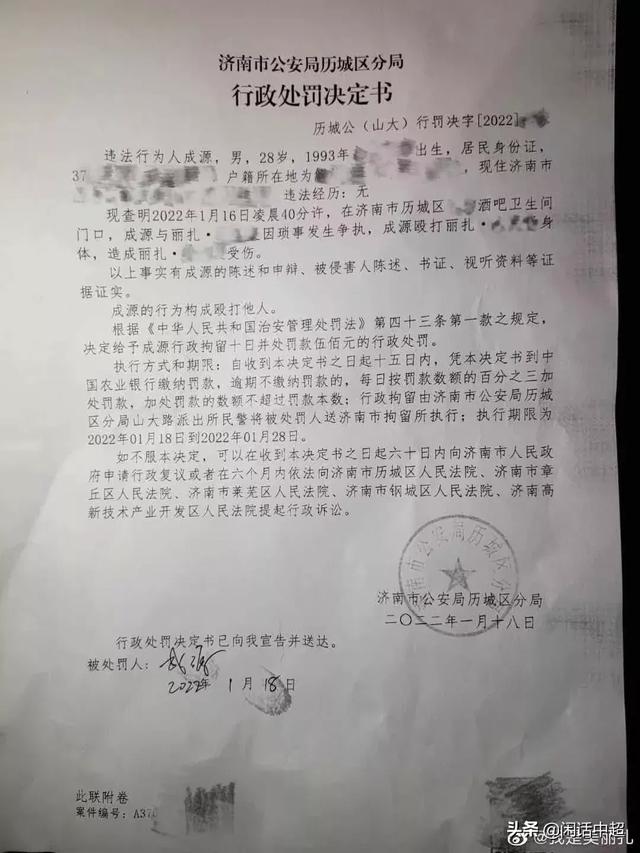 济南市公安局历城区分局
行政处罚决定书
历城公（山大）行罚决字[2022]
违法行为人成源，男，28岁，1993年 出生，居民身份证，
37 户籍所在地为 ，现住济南市
违法经历：无
现查明2022年1月16日凌晨40分许，在济南市历城区 酒吧卫生间
门口，成源与丽扎· 因琐事发生争执，成源殴打丽扎· 身
体，造成丽扎· 受伤。
以上事实有成源的陈述和申辩、被侵害人陈述、书证、视听资料等证
据证实。
成源的行为构成殴打他人。
根据《中华人民共和国治安管理处罚法》第四十三条第一款之规定，
决定给予成源行政拘留十日并处罚款伍佰元的行政处罚。
执行方式和期限：自收到本决定书之日起十五日内，凭本决定书到中
国农业银行缴纳罚款，逾期不缴纳罚款的，每日按罚款数额的百分之三加
处罚款，加处罚款的数额不超过罚款本数；行政拘留由济南市公安局历城
区分局山大路派出所民警将被处罚人送济南市拘留所执行；执行期限为
2022年01月18日到2022年01月28日。
如不服本决定，可以在收到本决定书之日起六十日内向济南市人民政
府申请行政复议或者在六个月内依法向济南市历城区人民法院、济南市章
丘区人民法院、济南市莱芜区人民法院、济南市钢城区人民法院、济南高
新技术产业开发区人民法院提起行政诉讼。
济南市公安局历城区分局
济南市公安局历城区分局
二〇二二年一月十八日
行政处罚决定书已向我宣告并送达。
被处罚人：成源
2022年 1月 18日
此联附卷
案件编号：A370
头条 @闲话中超
@我是美丽扎